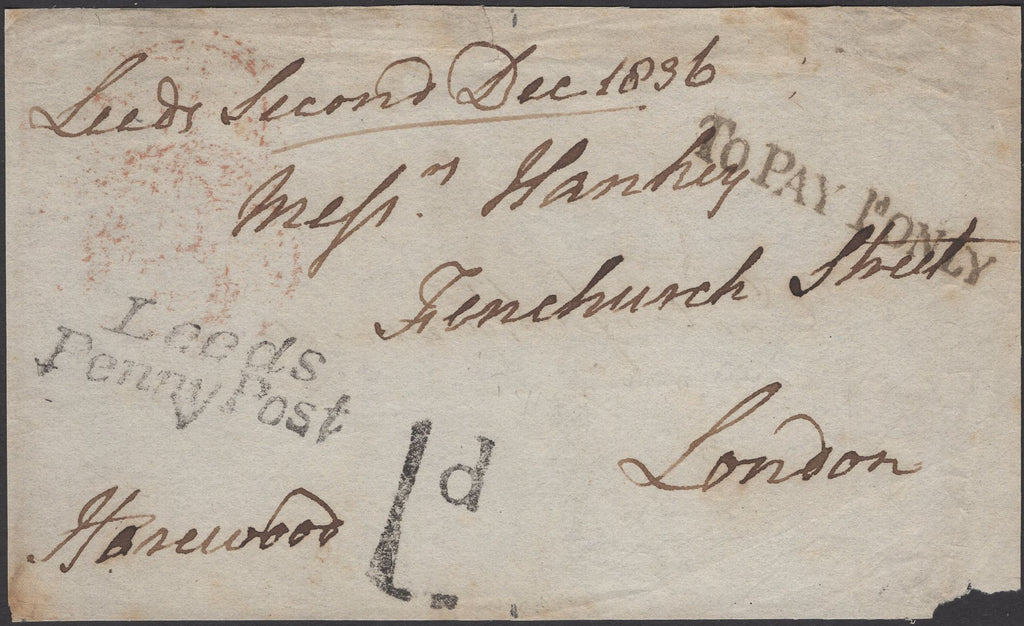 Leeds Second Dec 1836
Messrs. Hankey
Fenchurch Street
London
Harewood
TO PAY 1D ONLY
Leeds
Penny Post
1d